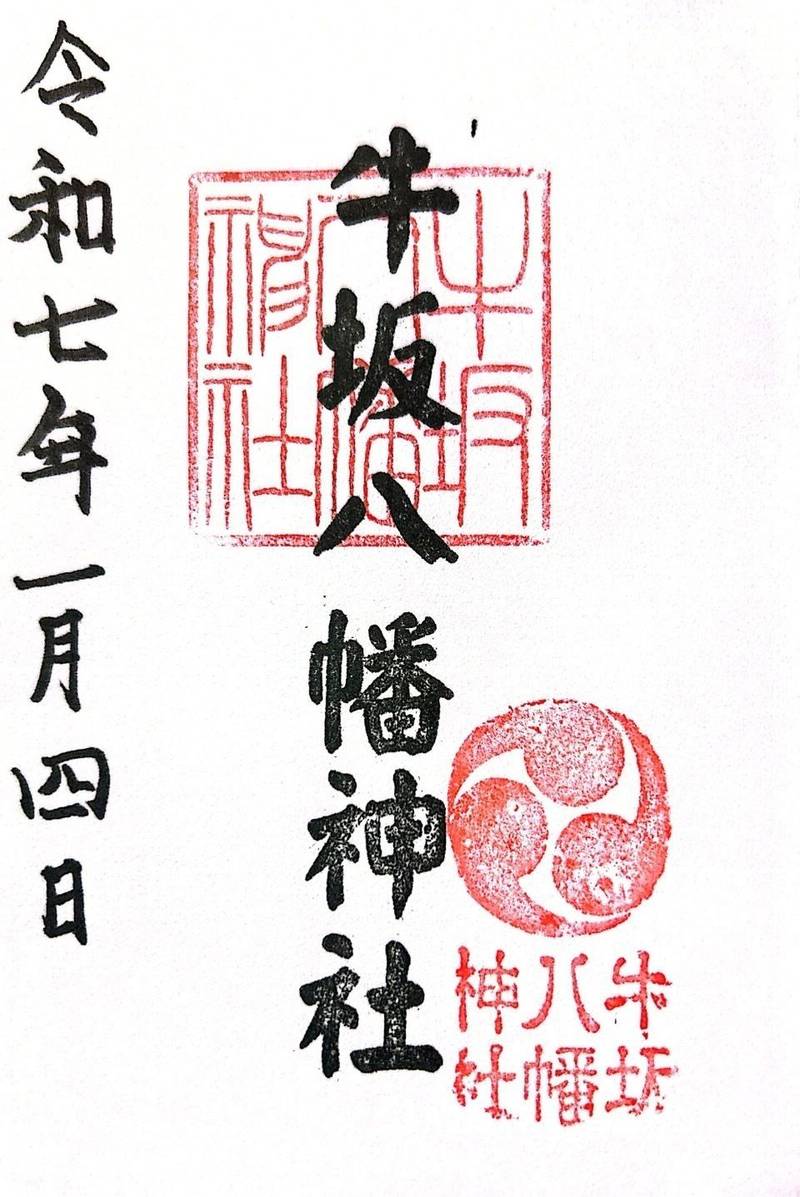 牛坂八幡神社
牛坂
八幡
神社
牛坂
八幡
神社
令和七年一月四日